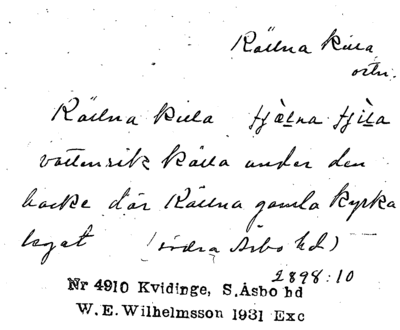 Källna källa
ortn.
Källna killa tjälna tjila
vattenrik källa under den
backe där Källna gamla kyrka
legat (södra Åsbo hd)
2898:10
Nr 4910 Kvidinge, S.Åsbo hd
W.E.Wilhelmsson 1931 Exc